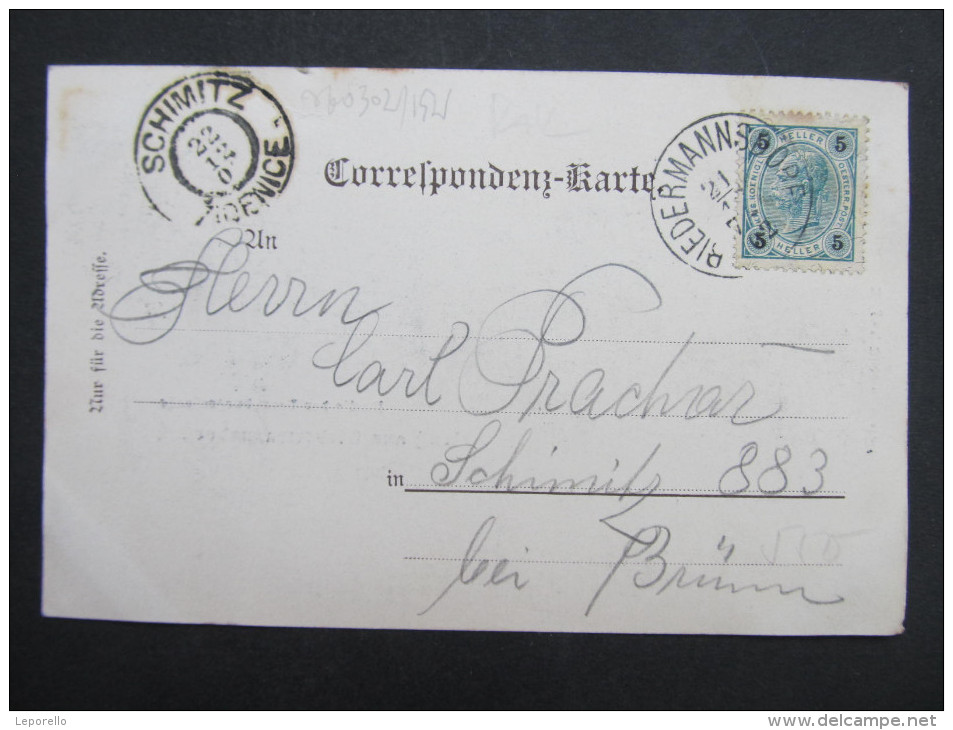 SCHIMITZ
Correspondenz-Karte
5 HELLER 5
5 HELLER 5
An
Nur für die Adresse.
Herrn
Carl Prachar
in Schimitz 883
bei Brünn
Leporello
www.delcampe.net